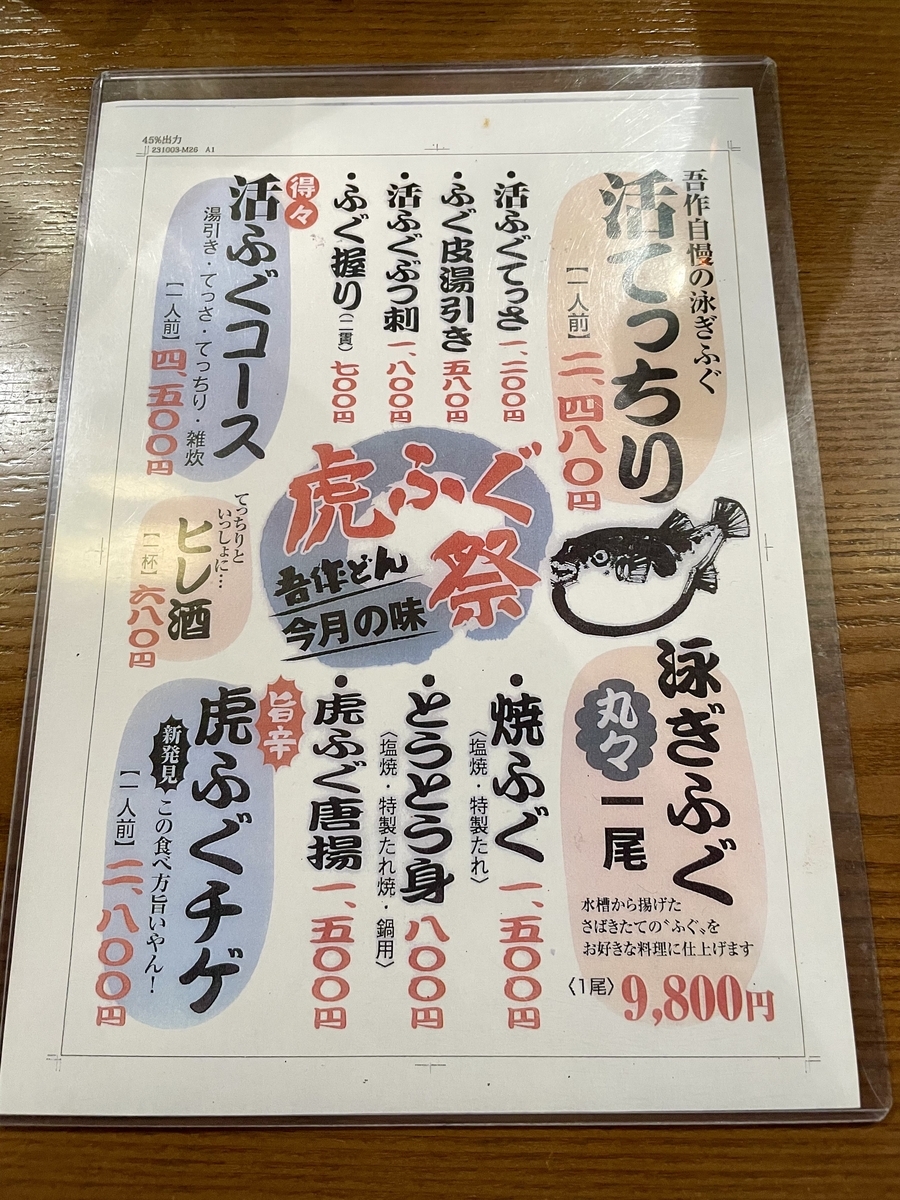 45%出力
231003-M26 A1
吾作自慢の泳ぎふぐ
活てっちり
【一人前】
二、四八〇円
・活ふぐてっさ 一、二〇〇円
・ふぐ皮湯引き 五八〇円
・活ふぐぶつ刺 一、八〇〇円
・ふぐ握り(二貫) 七〇〇円
得々
活ふぐコース
湯引き・てっさ・てっちり・雑炊
【一人前】
四、五〇〇円
虎ふぐ祭
吾作どん
今月の味
てっちりと
いっしょに…
ヒレ酒
【一杯】
六八〇円
泳ぎふぐ
丸々
一尾
水槽から揚げた
さばきたての〝ふぐ〟を
お好きな料理に仕上げます
〈1尾〉9,800円
・焼ふぐ 一、五〇〇円
〈塩焼・特製たれ〉
・とうとう身 八〇〇円
〈塩焼・特製たれ焼・鍋用〉
・虎ふぐ唐揚 一、五〇〇円
旨辛
虎ふぐチゲ
新発見
この食べ方旨いやん!
【一人前】
二、八〇〇円